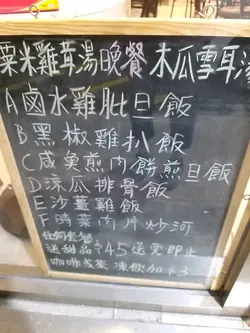 粟米雞茸湯晚餐 木瓜雪耳湯
A鹵水雞肶旦飯
B黑椒雞扒飯
C咸魚煎肉餅煎旦飯
D涼瓜排骨飯
E沙薑雞飯
F時菜肉片炒河
任何套餐
送甜品 $45 送完即止
咖啡或茶 凍飲加$3